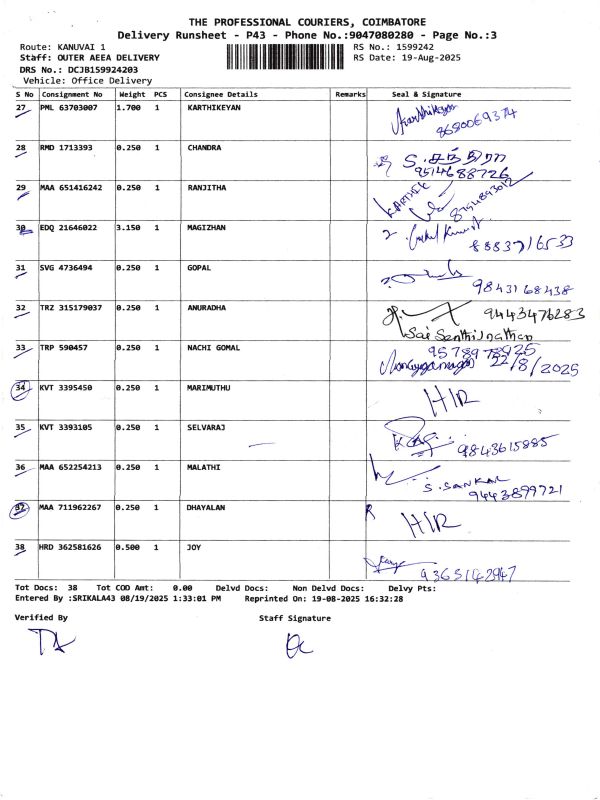 THE PROFESSIONAL COURIERS, COIMBATORE
Delivery Runsheet - P43 - Phone No.:9047080280 - Page No.:3
Route: KANUVAI 1 RS No.: 1599242
Staff: OUTER AEEA DELIVERY RS Date: 19-Aug-2025
DRS No.: DCJB159924203
Vehicle: Office Delivery
S No Consignment No Weight PCS Consignee Details Remarks Seal & Signature
27 PML 63703007 1.700 1 KARTHIKEYAN Karthikeyan
8680069374
28 RMD 1713393 0.250 1 CHANDRA
9514688726
29 MAA 651416242 0.250 1 RANJITHA KARTHIK
30 EDQ 21646022 3.150 1 MAGIZHAN
8883716533
31 SVG 4736494 0.250 1 GOPAL
9843168438
32 TRZ 315179037 0.250 1 ANURADHA 9443476283
Sai Senthilnathan
33 TRP 590457 0.250 1 NACHI GOMAL
22/8/2025
34 KVT 3395450 0.250 1 MARIMUTHU H/R
35 KVT 3393105 0.250 1 SELVARAJ
9843615885
36 MAA 652254213 0.250 1 MALATHI
S. SANKAR
9443899721
37 MAA 711962267 0.250 1 DHAYALAN R H/R
38 HRD 362581626 0.500 1 JOY
9365142947
Tot Docs: 38 Tot COD Amt: 0.00 Delvd Docs: Non Delvd Docs: Delvy Pts:
Entered By :SRIKALA43 08/19/2025 1:33:01 PM Reprinted On: 19-08-2025 16:32:28
Verified By Staff Signature